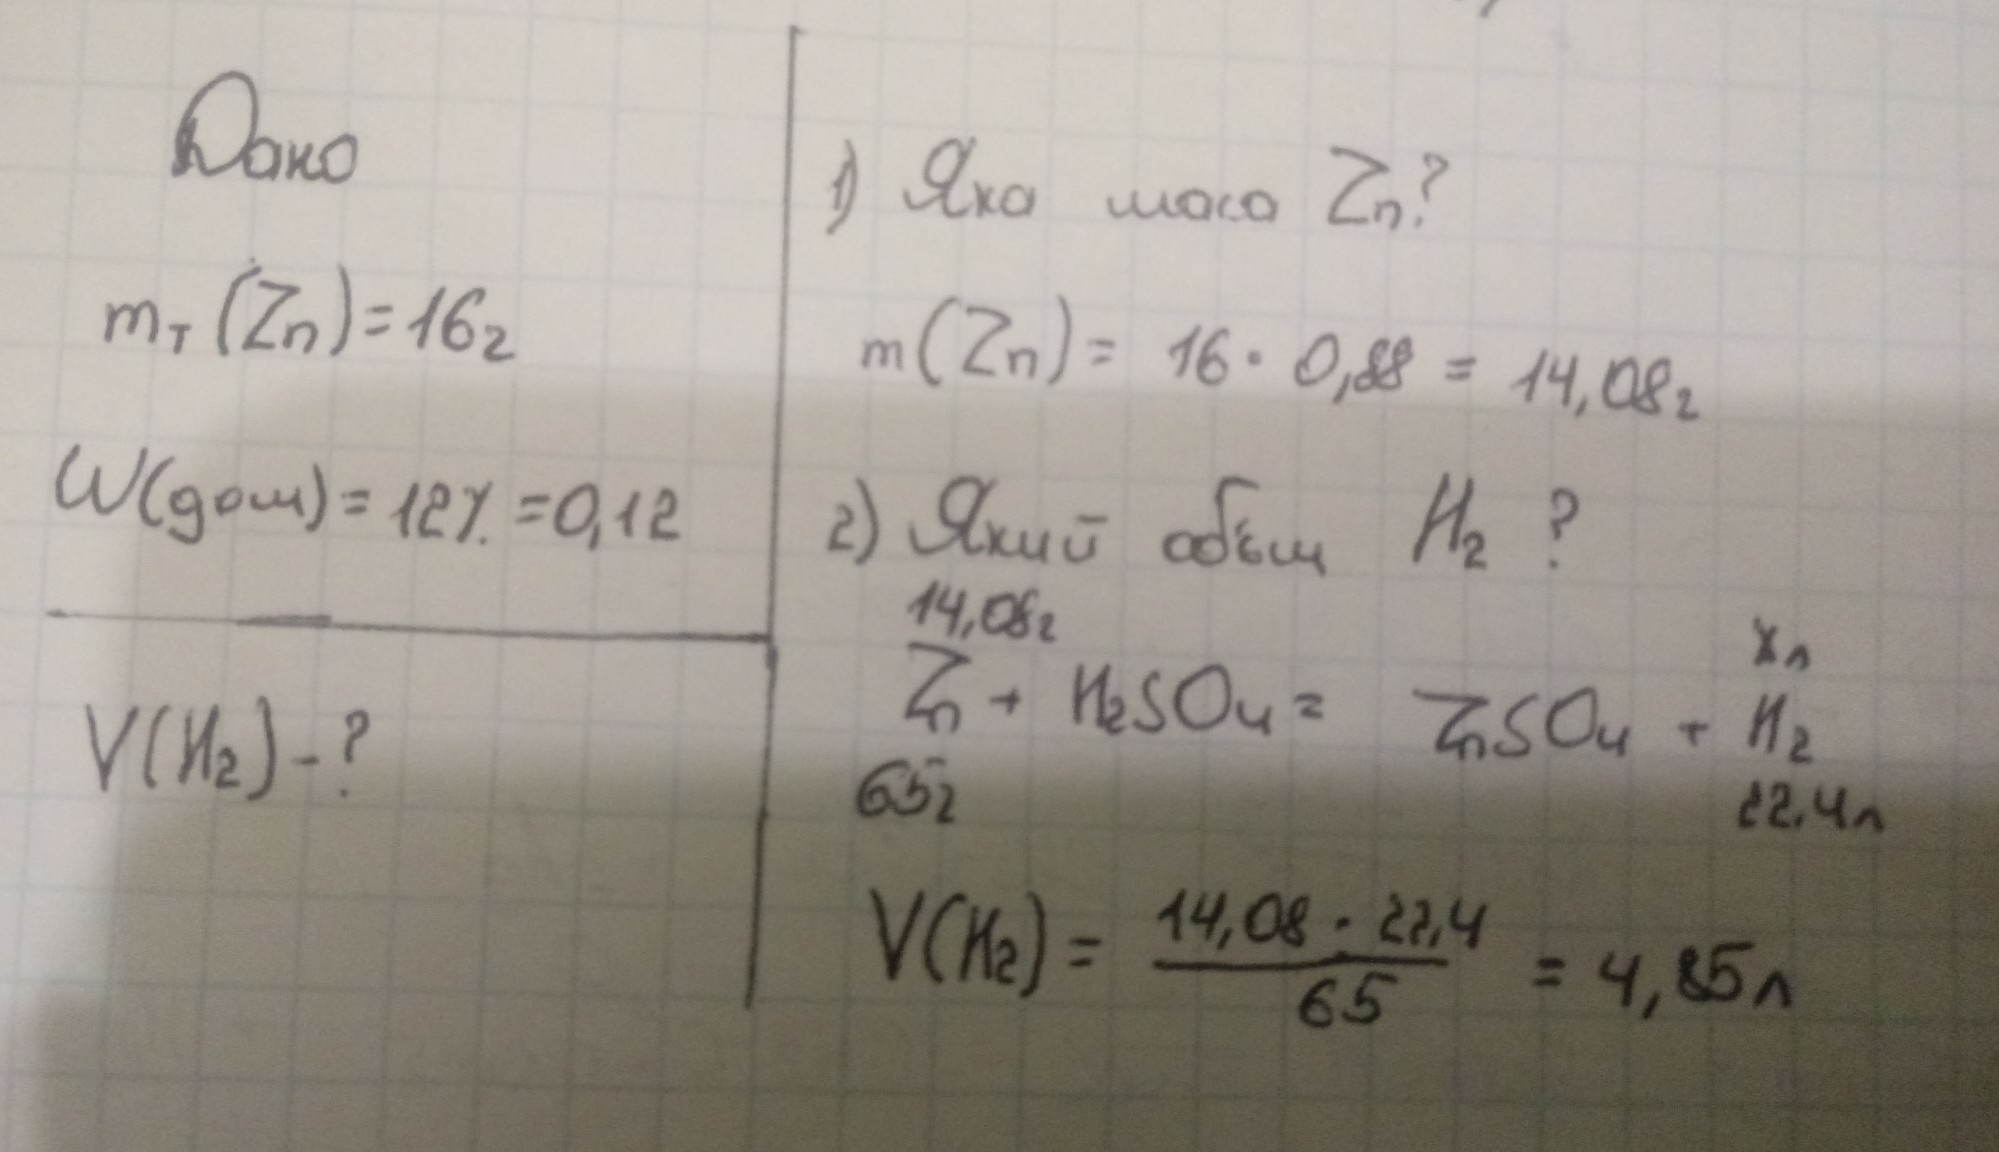 Дано
mт (Zn) = 16г
W(дом) = 12% = 0,12
V(H₂) - ?
1) Яка маса Zn?
m(Zn) = 16 · 0,88 = 14,08г
2) Який обʼєм H₂ ?
14,08г xл
Zn + H₂SO₄ = ZnSO₄ + H₂
65г 22,4л
V(H₂) = 14,08 · 22,4 / 65 = 4,85л